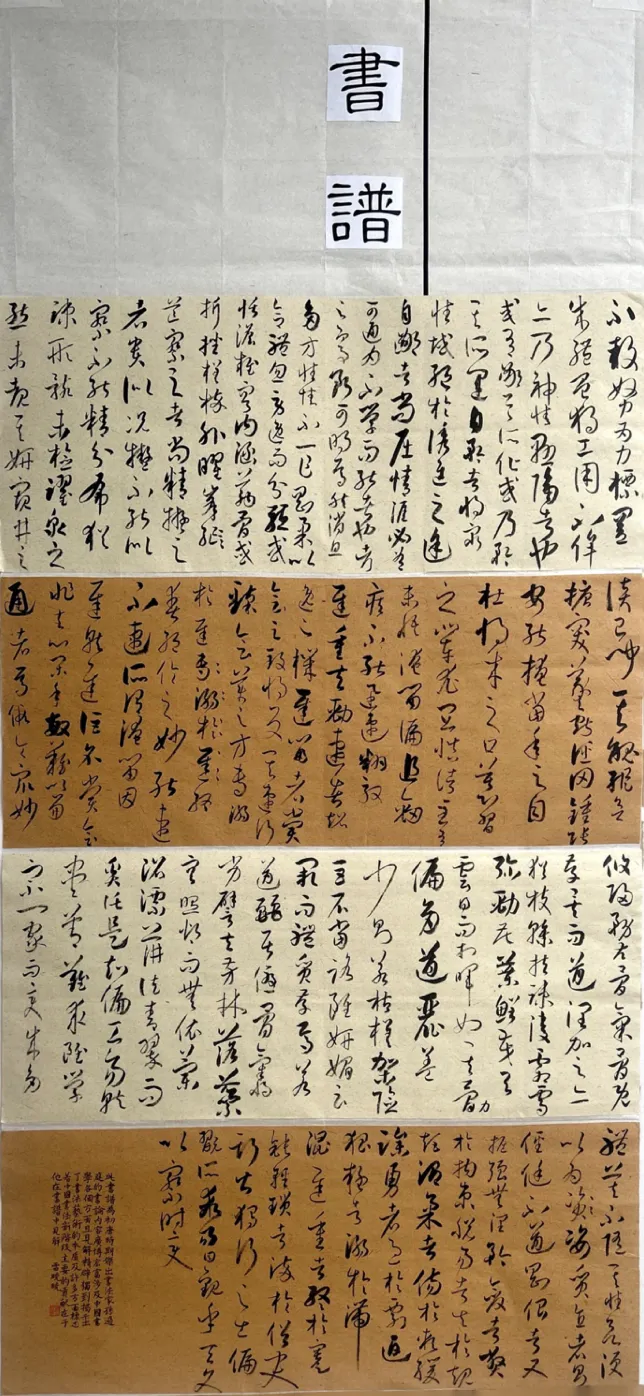 書譜
不鼓努為力標置
成體豈獨工用不侔
亦乃神情懸隔者也
或有鄙其所作或乃矜
其所運自矜者將窮
性域絕於誘進之途
自鄙者尚屈情涯必有
可通為不學而能者也考
之即事斷可明焉然消息
多方性情不一乍剛柔以
合體忽勞逸而分驅或
恬澹雍容內涵筋骨或
折挫槎枿外曜鋒
芒察之者尚精擬之
者貴似況擬不能似
察不能精分布猶
疎形骸未檢躍泉之
態未覩其妍窺井之
談已聞其醜縱欲
搪突羲獻誣罔鍾張
安能掩當年之目
杜將來之口慕習
之輩尤宜慎諸至有
未悟淹留偏追勁
疾不能迅速翻效
遲重夫勁速者超
逸之機遲留者賞
會之致將反其速行
臻會美之方專溺
於遲專溺於遲終
爽絕倫之妙能速
不速所謂淹留因
遲就遲詎名賞會
非其心閑手敏難以兼
通者焉假令眾妙
攸歸務存骨氣骨既
存矣而遒潤加之亦
猶枝幹扶疎淩霜雪而
彌勁花葉鮮茂與
雲日而相暉如其骨力
偏多遒麗蓋
少則若枯槎架險
巨石當路雖妍媚云
闕而體質存焉若
遒麗居優骨氣將
劣譬夫芳林落蘂
空照灼而無依蘭
沼漂蓱徒青翠而
奚託是知偏工易就
盡善難求雖學
宗一家而變成多
體莫不隨其性欲便
以為姿質直者則
俓侹不遒剛佷者又
掘強無潤矜斂者弊
於拘束脫易者失於規
矩溫柔者傷於軟緩
躁勇者過於剽迫
狐疑者溺於滯
澀遲重者終於蹇
鈍輕瑣者淬於俗吏
斯皆獨行之士偏
翫所乖易曰觀乎天文
以察時變
此書譜為初唐時期傑出書法家孫過
庭的書論內容廣博宏富涉及中國書
學各個方面且見解精辟獨到揭示出
了書法藝術的本質及許多方面
他在書譜中見解